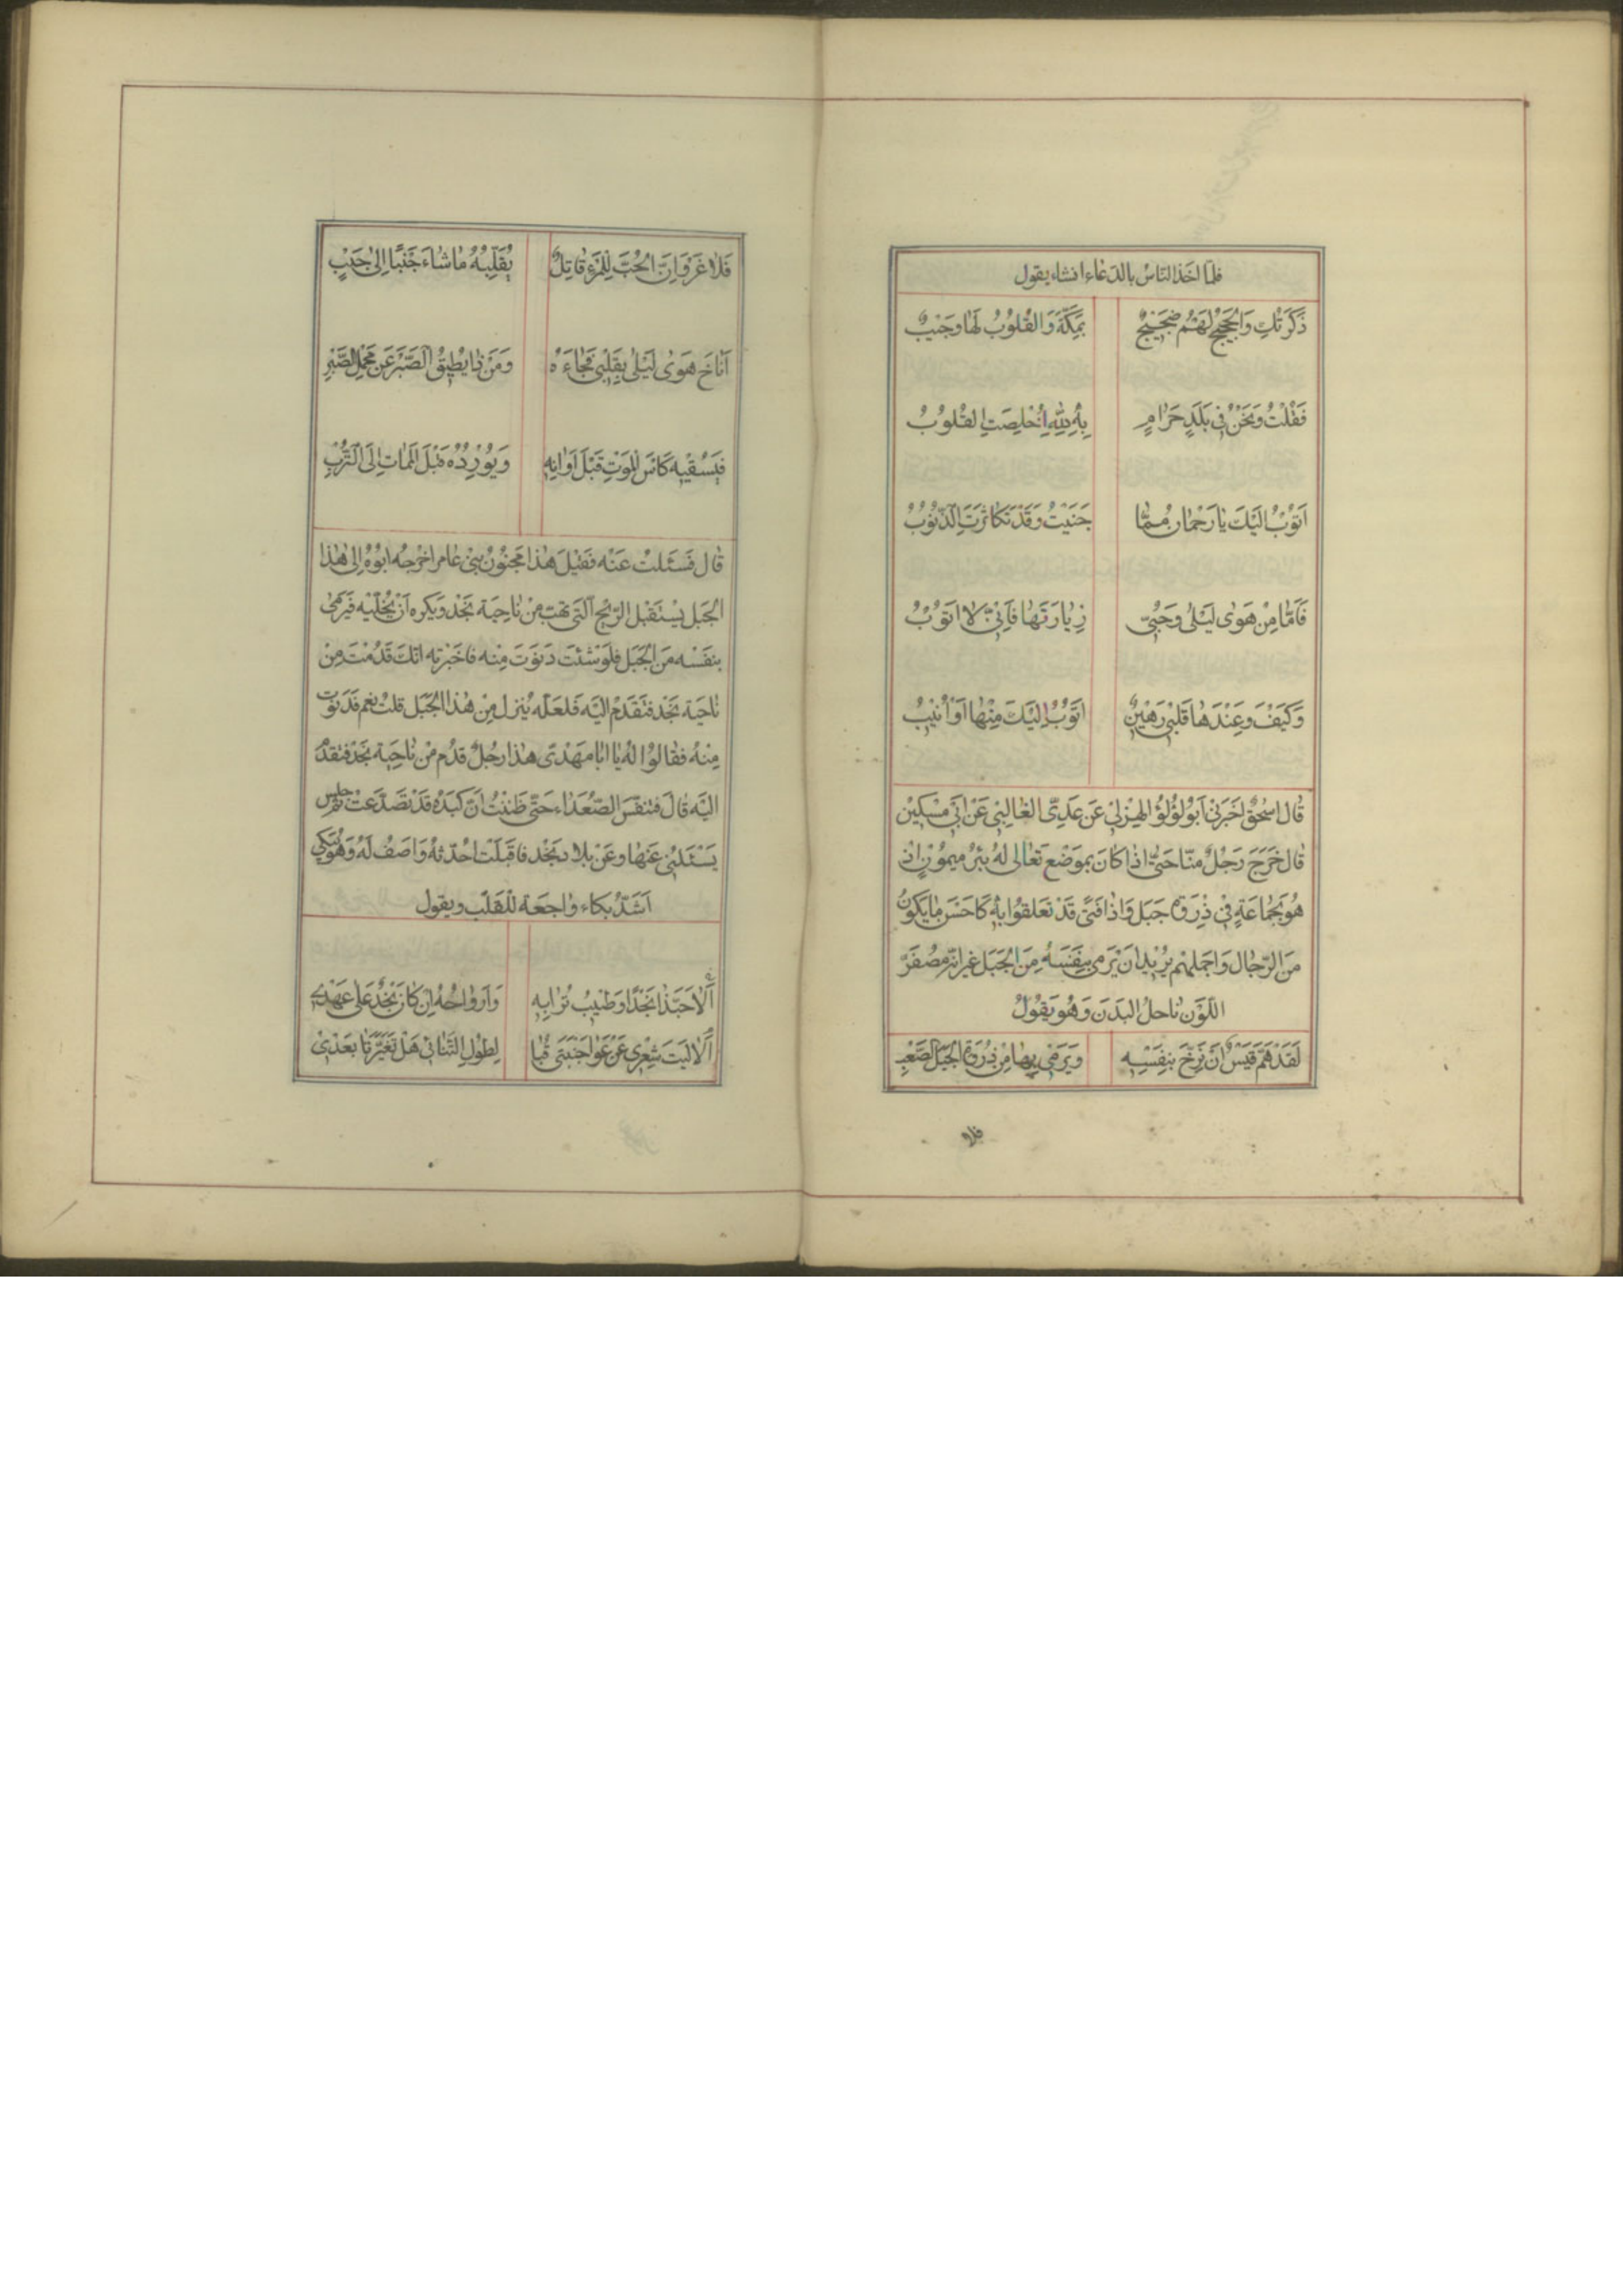 فلمّا اخذ الناس بالدعاء انشاء يقول
ذَكَرْتُكِ وَالحَجِيجُ لَهُمْ ضَجِيجٌ بِمَكَّةَ وَالقُلُوبُ لَها وَجِيبٌ
فَقُلْتُ وَنَحْنُ فِي بَلَدٍ حَرامٍ بِهِ لِلّهِ أُخْلِصَتِ القُلُوبُ
اَتُوبُ اِلَيْكَ يا رَحْمان مِمّا جَنَيْتُ وَقَدْ تَكاثَرَتِ الذُّنُوبُ
فَاَمّا مِنْ هَوى لَيْلى وَحُبِّي زِيارَتَها فَاِنِّي لا اَتُوبُ
وَكَيْفَ وَعِنْدَها قَلْبِي رَهِينٌ اَتُوبُ اِلَيْكَ مِنْها اَوْ اُنِيبُ
قال اسحق اخبرني ابو لؤلؤ عن عديّ الغالبي عن ابي مسكين
قال خرج رجل منّا حتّى اذا كان بموضع تعالى له بئر ميمون اذ
هو بجماعة في ذروة جبل واذا فتى قد تعلقوا به كاحسن ما يكون
من الرّجال واجملهم يريد ان يرمي بنفسه من الجبل غير انّه مصفرّ
اللون ناحل البدن وهو يقول
لَقَدْ هَمَّ قَيْسٌ اَنْ يَزُخَّ بِنَفْسِهِ وَيَرْمِي بِها مِنْ ذُرْوَةِ الجَبَلِ الصَّعْبِ
فلا
فَلا غَرْوَ اِنَّ الحُبَّ لِلْمَرْءِ قاتِلٌ يُقَلِّبُهُ ما شاءَ جَنْبًا اِلى جَنْبٍ
اَناخَ هَوى لَيْلى بِقَلْبِي فَجاءَهُ وَمَنْ ذا يُطِيقُ الصَّبْرَ عَنْ مَحْمِلِ الصَّبْرِ
فَيَسْقِيهِ كَاْسَ المَوْتِ قَبْلَ اَوانِهِ وَيُورِدُهُ قَبْلَ المَماتِ اِلَى التُّرْبِ
قال فسئلت عنه فقيل هذا مجنون بني عامر اخرجه ابوه الى هذا
الجبل يستقبل الرّيح الّتي تهبّ من ناحية نجد ويكره ان يخلّيه فيرمى
بنفسه من الجبل فلو شئت دنوت منه فاخبرته انّك قدمت من
ناحية نجد فتقدم اليه فلعلّه ينزل من هذا الجبل قلت نعم فدنوت
منه فقالوا له يا ابا مهديّ هذا رجل قدم من ناحية نجد فتقدم
اليه قال فتنفّس الصّعداء حتّى ظننت انّ كبده قد تصدّعت ثمّ جلس
يسئلني عنها وعن بلاد نجد فاقبلت احدّثه واصف له وهو يبكي
اشدّ بكاء واجعة للقلب ويقول
اَلا حَبَّذا نَجْدًا وَطِيبُ تُرابِهِ وَاَرْواحُهُ اِنْ كانَ نَجْدٌ عَلى عَهْدِي
اَلا لَيْتَ شِعْرِي عَنْ عَوارِضَتَي قُبا لِطُولِ التَّنائِي هَلْ تَغَيَّرَتا بَعْدِي